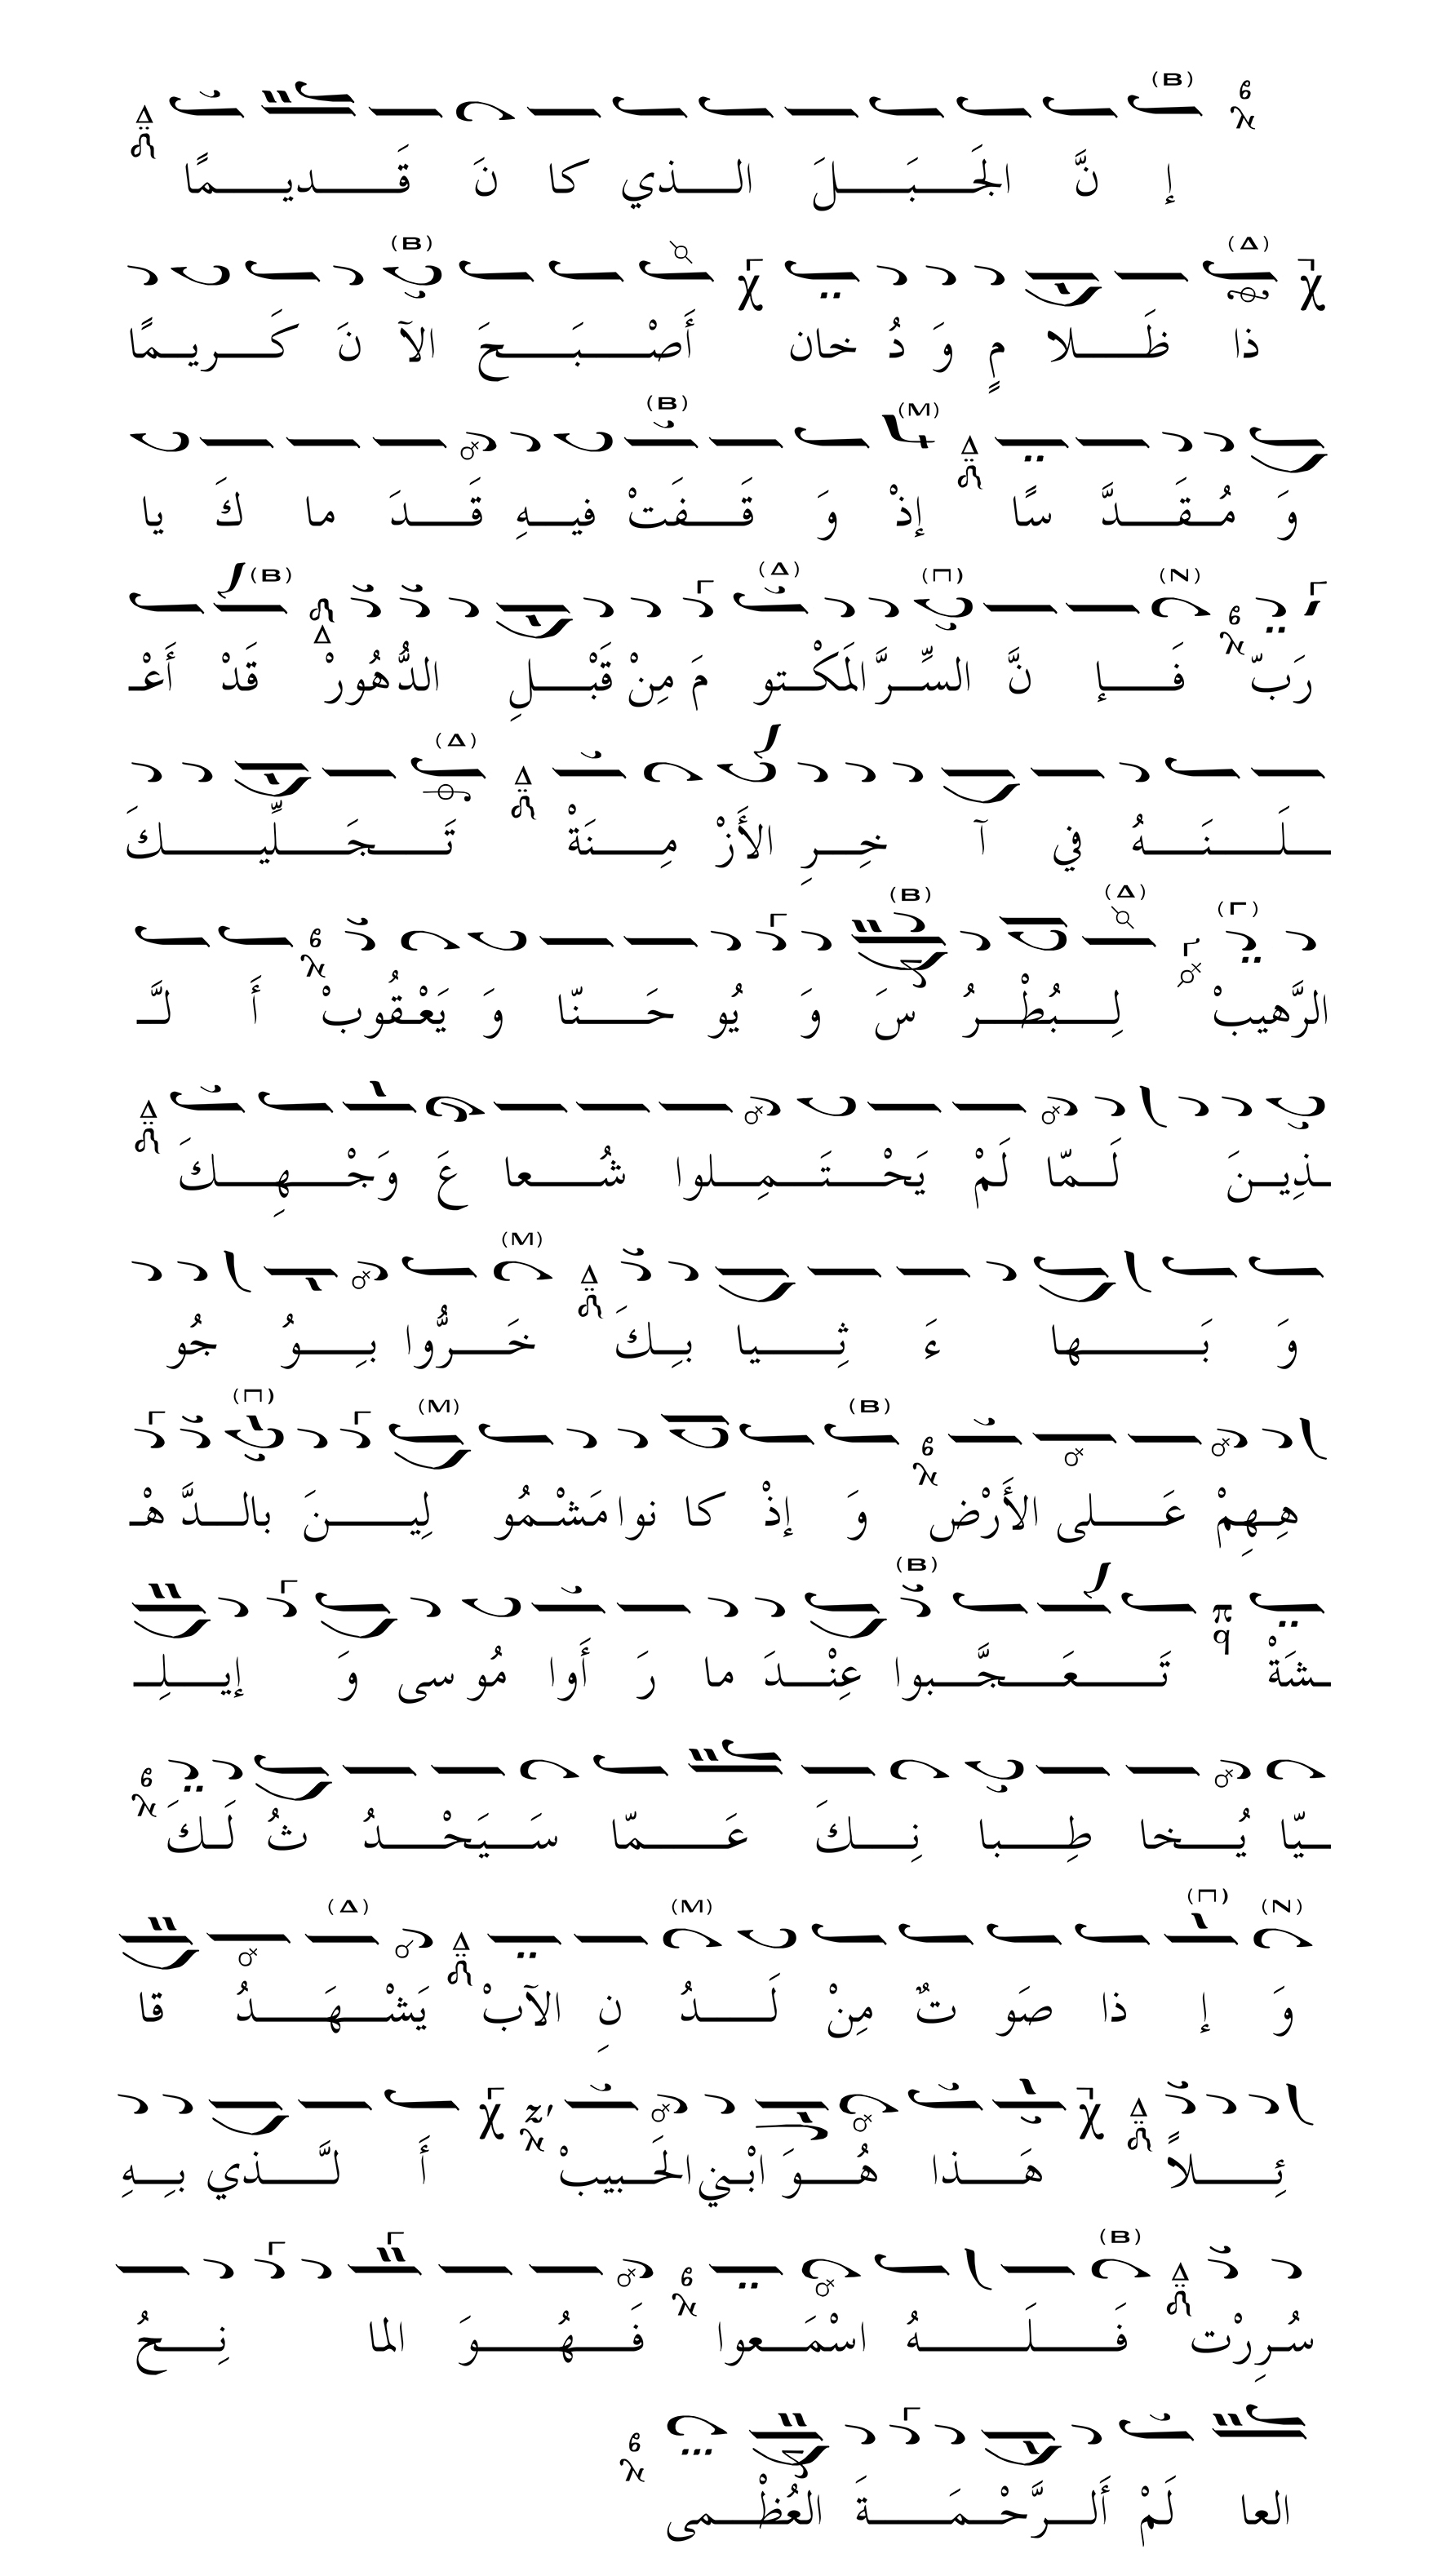 إِنَّ الجَبَلَ الذي كانَ قَديمًا
ذا ظَلامٍ وَدُخان أَصْبَحَ الآنَ كَريمًا
وَمُقَدَّسًا إذْ وَقَفَتْ فيهِ قَدَماكَ يا
رَبّ فَإنَّ السِّرَّ المَكْتومَ مِنْ قَبْلِ الدُّهُورْ قَدْ أَعْـ
ـلَنَهُ في آخِرِ الأَزْمِنَةْ تَجَلِّيكَ
الرَّهيبْ لِبُطْرُسَ وَيُوحَنّا وَيَعْقُوبْ أَلَّـ
ـذِينَ لَمّا لَمْ يَحْتَمِلوا شُعاعَ وَجْهِكَ
وَبَهاءَ ثِيابِكَ خَرُّوا بِوُجُو
هِهِمْ عَلى الأَرْض وَإذْ كانوا مَشْمُولِينَ بالدَّهْـ
ـشَةْ تَعَجَّبوا عِنْدَما رَأَوا مُوسى وَإيلِـ
ـيّا يُخاطِبانِكَ عَمّا سَيَحْدُثُ لَكَ
وَإذا صَوتٌ مِنْ لَدُنِ الآبْ يَشْهَدُ قا
ئِلاً هَذا هُوَ ابْني الحَبيبْ أَلَّذي بِهِ
سُرِرْت فَلَهُ اسْمَعوا فَهُوَ المانِحُ
العالَمْ أَلرَّحْمَةَ العُظْمى